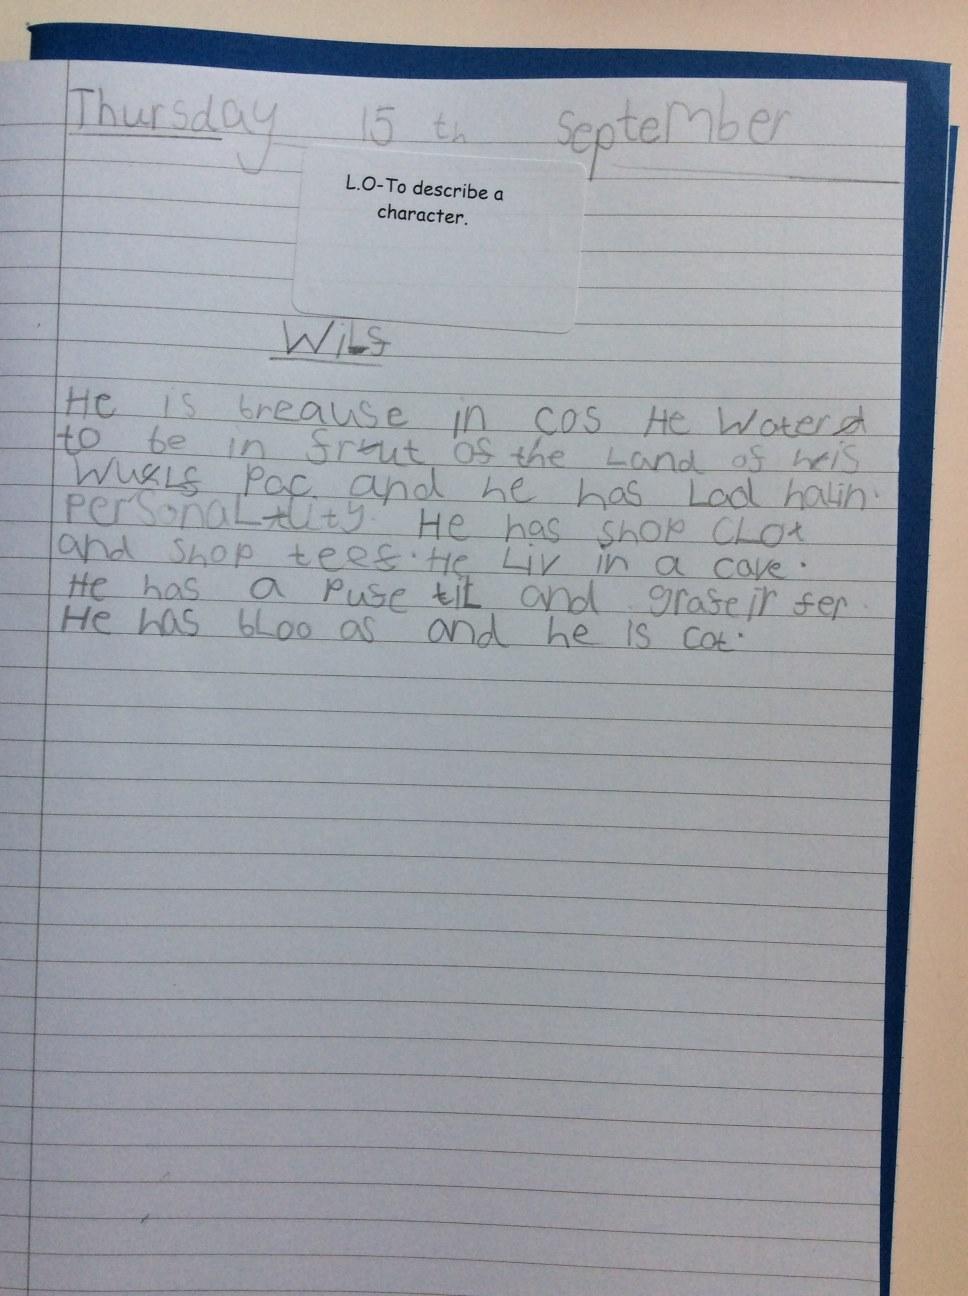 Thursday 15 th September
L.O-To describe a
character.
Wilf
He is breause in cos He Waterd
to be in frunt of the Land of his
Wuxls Pac. and he has Lad halin.
Personaltity. He has shop CLot
and shop teef. He Liv in a cave.
He has a Puse til and grafeir fer.
He has bloo as and he is cat.